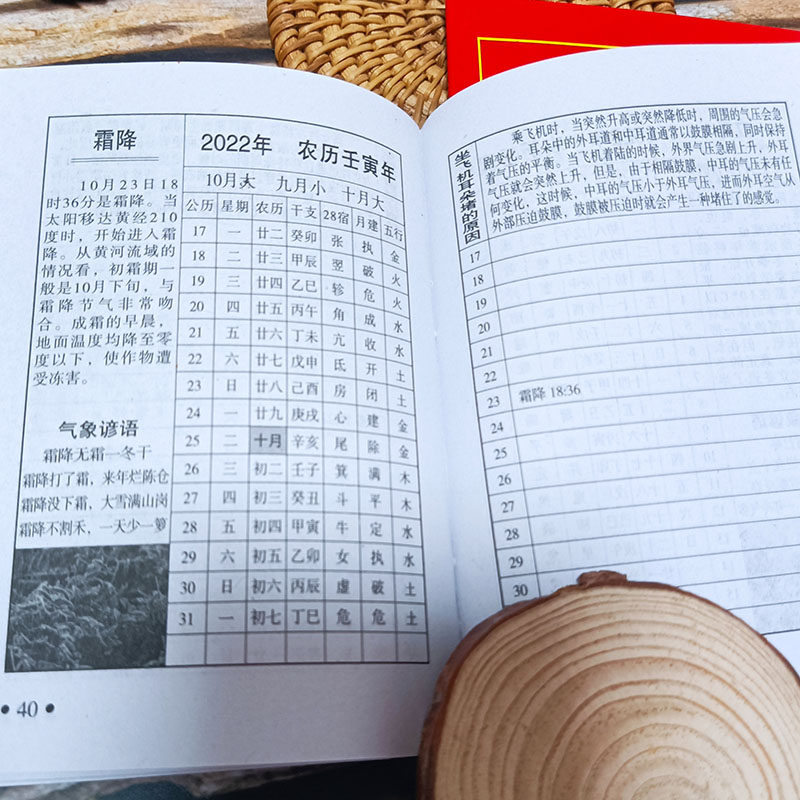 霜降
10月23日18
时36分是霜降。当
太阳移达黄经210
度时，开始进入霜
降。从黄河流域的
情况看，初霜期一
般是10月下旬，与
霜降节气非常吻
合。成霜的早晨，
地面温度均降至零
度以下，使作物遭
受冻害。
气象谚语
霜降无霜一冬干
霜降打了霜，来年烂陈仓
霜降没下霜，大雪满山岗
霜降不割禾，一天少一箩
• 40 •
2022年 农历壬寅年
10月大 九月小 十月大
公历 星期 农历 干支 28宿 月建 五行
17 一 廿二 癸卯 张 执 金
18 二 廿三 甲辰 翌 破 火
19 三 廿四 乙巳 轸 危 火
20 四 廿五 丙午 角 成 水
21 五 廿六 丁未 亢 收 水
22 六 廿七 戊申 氐 开 土
23 日 廿八 己酉 房 闭 土
24 一 廿九 庚戌 心 建 金
25 二 十月 辛亥 尾 除 金
26 三 初二 壬子 箕 满 木
27 四 初三 癸丑 斗 平 木
28 五 初四 甲寅 牛 定 水
29 六 初五 乙卯 女 执 水
30 日 初六 丙辰 虚 破 土
31 一 初七 丁巳 危 危 土
坐飞机耳朵堵的原因
乘飞机时，当突然升高或突然降低时，周围的气压会急
剧变化。耳朵中的外耳道和中耳道通常以鼓膜相隔，同时保持
着气压的平衡。当飞机着陆的时候，外界气压急剧上升，外耳
气压就会突然上升，但是，由于相隔鼓膜，中耳的气压未有任
何变化，这时候，中耳的气压小于外耳气压，进而外耳空气从
外部压迫鼓膜，鼓膜被压迫时就会产生一种堵住了的感觉。
17
18
19
20
21
22
23 霜降 18:36
24
25
26
27
28
29
30